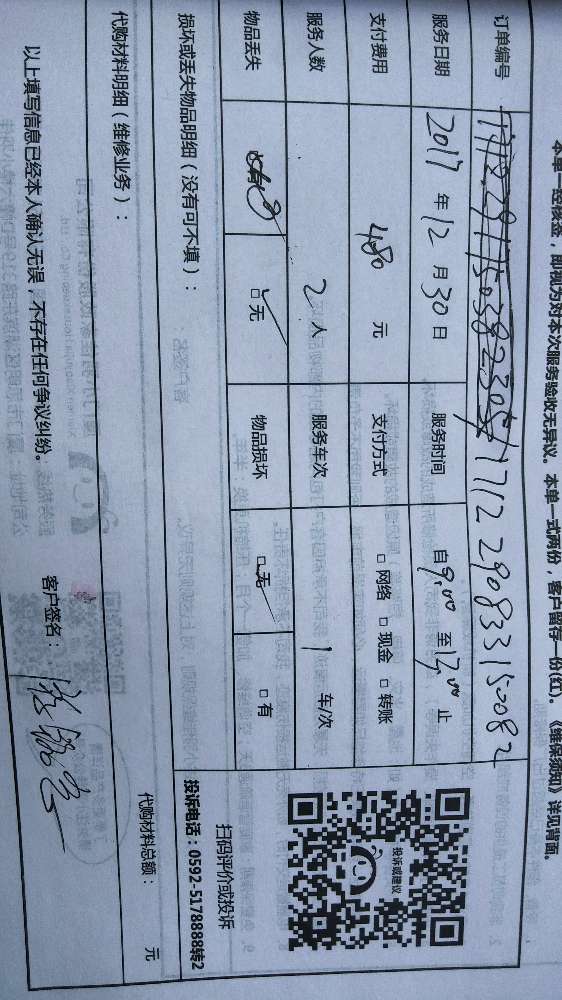 本单一经核签，即视为对本次服务验收无异议。本单一式两份，客户留存一份(红)。《维保须知》详见背面。
订单编号 17122908331508 2
服务日期 2017年12月30日 服务时间 自9:00至12:00止
支付费用 480元 支付方式 □网络 □现金 □转账
服务人数 2人 服务车次 1车/次
物品丢失 □无 物品损坏 □无 □有
损坏或丢失物品明细（没有可不填）：
投诉或建议
扫码评价或投诉
投诉电话：0592-5178888转2
代购材料明细（维修业务）： 代购材料总额： 元
以上填写信息已经本人确认无误，不存在任何争议纠纷。 客户签名：